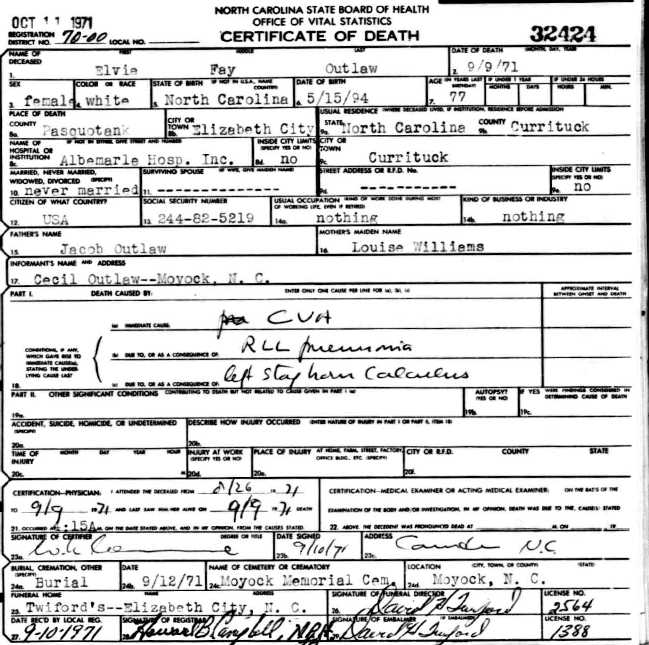 NORTH CAROLINA STATE BOARD OF HEALTH
OCT 11 1971 OFFICE OF VITAL STATISTICS
REGISTRATION DISTRICT NO. 70-00 LOCAL NO. CERTIFICATE OF DEATH 32424
NAME OF DECEASED FIRST MIDDLE LAST DATE OF DEATH (MONTH, DAY, YEAR)
1. Elvie Fay Outlaw 2. 9/9/71
SEX COLOR OR RACE STATE OF BIRTH (IF NOT IN U.S.A., NAME COUNTRY) DATE OF BIRTH AGE (IN YEARS LAST BIRTHDAY) IF UNDER 1 YEAR MONTHS DAYS IF UNDER 24 HOURS HOURS MIN.
3. female 4. white 5. North Carolina 6. 5/15/94 7. 77
PLACE OF DEATH USUAL RESIDENCE (WHERE DECEASED LIVED, IF INSTITUTION, RESIDENCE BEFORE ADMISSION)
COUNTY CITY OR TOWN STATE COUNTY
8a. Pasquotank 8b. Elizabeth City 9a. North Carolina 9b. Currituck
NAME OF HOSPITAL OR INSTITUTION (IF NOT IN EITHER, GIVE STREET AND NUMBER) INSIDE CITY LIMITS (SPECIFY YES OR NO) CITY OR TOWN
8c. Albemarle Hosp. Inc. 8d. no 9c. Currituck
MARRIED, NEVER MARRIED, WIDOWED, DIVORCED (SPECIFY) SURVIVING SPOUSE (IF WIFE, GIVE MAIDEN NAME) STREET ADDRESS OR R.F.D. No. INSIDE CITY LIMITS (SPECIFY YES OR NO)
10. never married 11. -------------- 9d. ---------- 9e. no
CITIZEN OF WHAT COUNTRY? SOCIAL SECURITY NUMBER USUAL OCCUPATION (KIND OF WORK DONE DURING MOST OF WORKING LIFE, EVEN IF RETIRED) KIND OF BUSINESS OR INDUSTRY
12. USA 13. 244-82-5219 14a. nothing 14b. nothing
FATHER'S NAME MOTHER'S MAIDEN NAME
15. Jacob Outlaw 16. Louise Williams
INFORMANT'S NAME AND ADDRESS
17. Cecil Outlaw--Moyock, N. C.
PART I. DEATH CAUSED BY: ENTER ONLY ONE CAUSE PER LINE FOR (a), (b), (c) APPROXIMATE INTERVAL BETWEEN ONSET AND DEATH
(a) IMMEDIATE CAUSE: CVA
CONDITIONS, IF ANY, WHICH GAVE RISE TO IMMEDIATE CAUSE(a), STATING THE UNDERLYING CAUSE LAST
(b) DUE TO, OR AS A CONSEQUENCE OF: RLL pneumonia
18. (c) DUE TO, OR AS A CONSEQUENCE OF: left stag horn Calculus
PART II. OTHER SIGNIFICANT CONDITIONS CONTRIBUTING TO DEATH BUT NOT RELATED TO CAUSE GIVEN IN PART I (a) AUTOPSY? (YES OR NO) IF YES WERE FINDINGS CONSIDERED IN DETERMINING CAUSE OF DEATH
19a. 19b. 19c.
ACCIDENT, SUICIDE, HOMICIDE, OR UNDETERMINED (SPECIFY) DESCRIBE HOW INJURY OCCURRED (ENTER NATURE OF INJURY IN PART I OR PART II, ITEM 18)
20a. 20b.
TIME OF INJURY MONTH DAY YEAR HOUR INJURY AT WORK (SPECIFY YES OR NO) PLACE OF INJURY AT HOME, FARM, STREET, FACTORY, OFFICE BLDG., ETC. (SPECIFY) CITY OR R.F.D. COUNTY STATE
20c. M 20d. 20e. 20f.
CERTIFICATION—PHYSICIAN: I ATTENDED THE DECEASED FROM 8/26 19 71
TO 9/9 19 71 AND LAST SAW HIM/HER ALIVE ON 9/9 19 71 DEATH
21. OCCURRED AT :15A M. ON THE DATE STATED ABOVE, AND IN MY OPINION, FROM THE CAUSES STATED
CERTIFICATION—MEDICAL EXAMINER OR ACTING MEDICAL EXAMINER: ON THE BASIS OF THE
EXAMINATION OF THE BODY AND/OR INVESTIGATION, IN MY OPINION, DEATH WAS DUE TO THE CAUSE(S) STATED
22. ABOVE. THE DECEDENT WAS PRONOUNCED DEAD AT M. ON 19
SIGNATURE OF CERTIFIER DEGREE OR TITLE DATE SIGNED ADDRESS
23a. 23b. 9/10/71 23c. Camden N.C.
BURIAL, CREMATION, OTHER (SPECIFY) DATE NAME OF CEMETERY OR CREMATORY LOCATION (CITY, TOWN, OR COUNTY) (STATE)
24a. Burial 24b. 9/12/71 24c. Moyock Memorial Cem. 24d. Moyock, N. C.
FUNERAL HOME NAME ADDRESS SIGNATURE OF FUNERAL DIRECTOR LICENSE NO.
25. Twiford's--Elizabeth City, N. C. 26. 2564
DATE REC'D BY LOCAL REG. SIGNATURE OF REGISTRAR SIGNATURE OF EMBALMER (IF EMBALMED) LICENSE NO.
27. 9-10-1971 28. Howard B. Campbell 1388